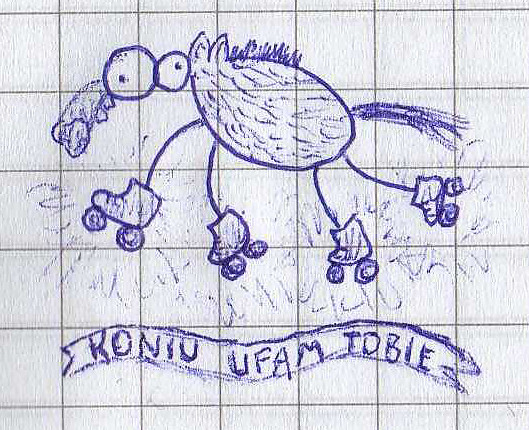 KONIU UFAM TOBIE